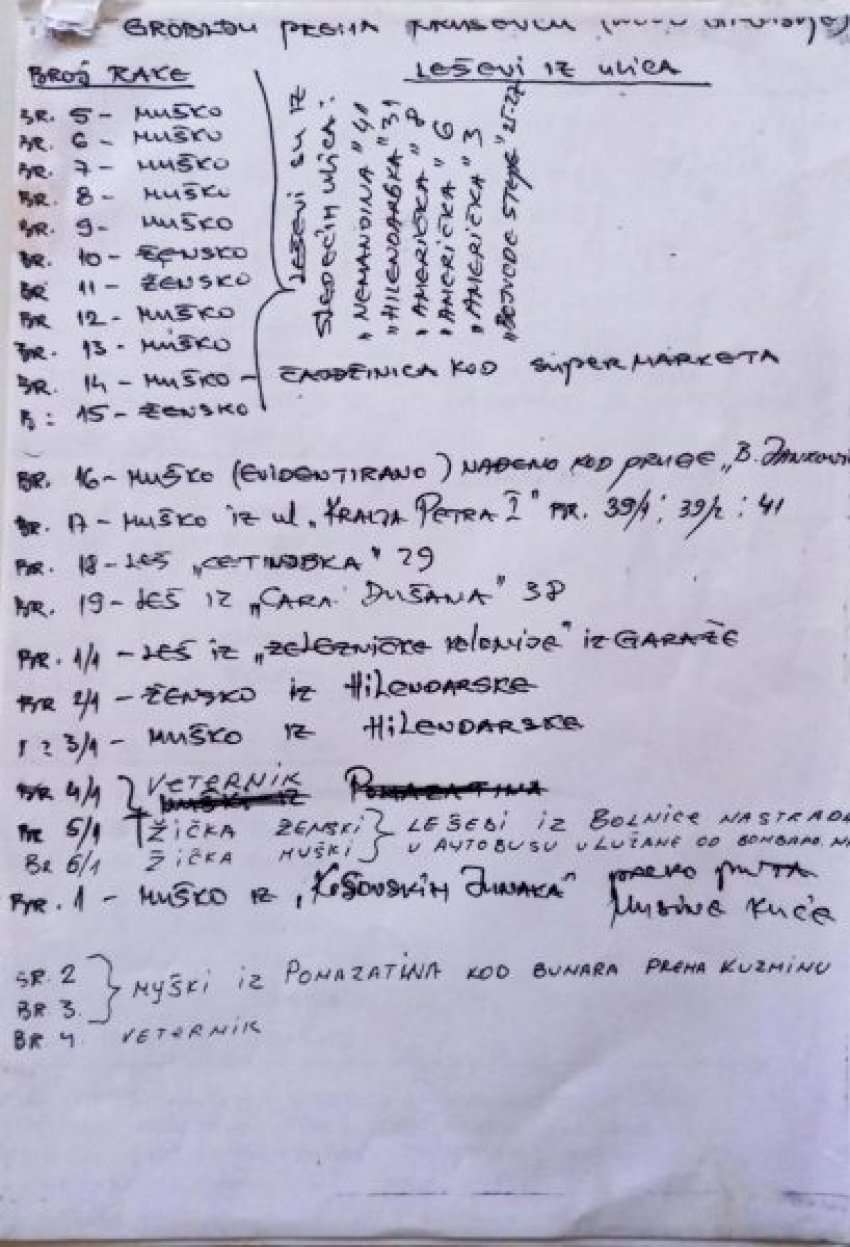 GROBLJU PREMA
BROJ RAKE
LEŠEVI IZ ULICA
BR. 5 - MUŠKO
BR. 6 - MUŠKO
BR. 7 - MUŠKO
BR. 8 - MUŠKO
BR. 9 - MUŠKO
BR. 10 - ŽENSKO
BR 11 - ŽENSKO
BR 12 - MUŠKO
BR. 13 - MUŠKO
BR. 14 - MUŠKO - ČAJDŽINICA KOD SUPERMARKETA
B: 15 - ŽENSKO
LEŠEVI SU IZ
SLEDEĆIH ULICA:
"NEMANJINA" 41
"HILENDARSKA" 31
"AMERIČKA" 8
"AMERIČKA" 6
"AMERIČKA" 3
"VOJVODE STEPE" 25-27
BR. 16 - MUŠKO (EVIDENTIRANO) NAĐENO KOD PRUGE „B. JANKOVI
BR. 17 - MUŠKO IZ ul. „KRALJA PETRA I" BR. 39/1; 39/2; 41
BR. 18 - LEŠ „CETINJSKA" 29
BR. 19 - LEŠ IZ „CARA DUŠANA" 38
BR. 1/1 - LEŠ IZ „ŽELEZNIČKE KOLONIJE" IZ GARAŽE
BR 2/1 - ŽENSKO IZ HILENDARSKE
3/1 - MUŠKO IZ HILENDARSKE
BR 4/1 } VETERNIK
BR 5/1 ŽIČKA ŽENSKI } LEŠEBI IZ BOLNICE NASTRADA
BR 6/1 ŽIČKA MUŠKI } U AUTOBUSU U LUŽANE OD BOMBARD. NA
BR. 1 - MUŠKO IZ „KOSOVSKIH JUNAKA" PREKO PUTA
KUĆE
BR. 2 } MYŠKI IZ POMAZATINA KOD BUNARA PREMA KUZMINU
BR 3.
BR 4. VETERNIK